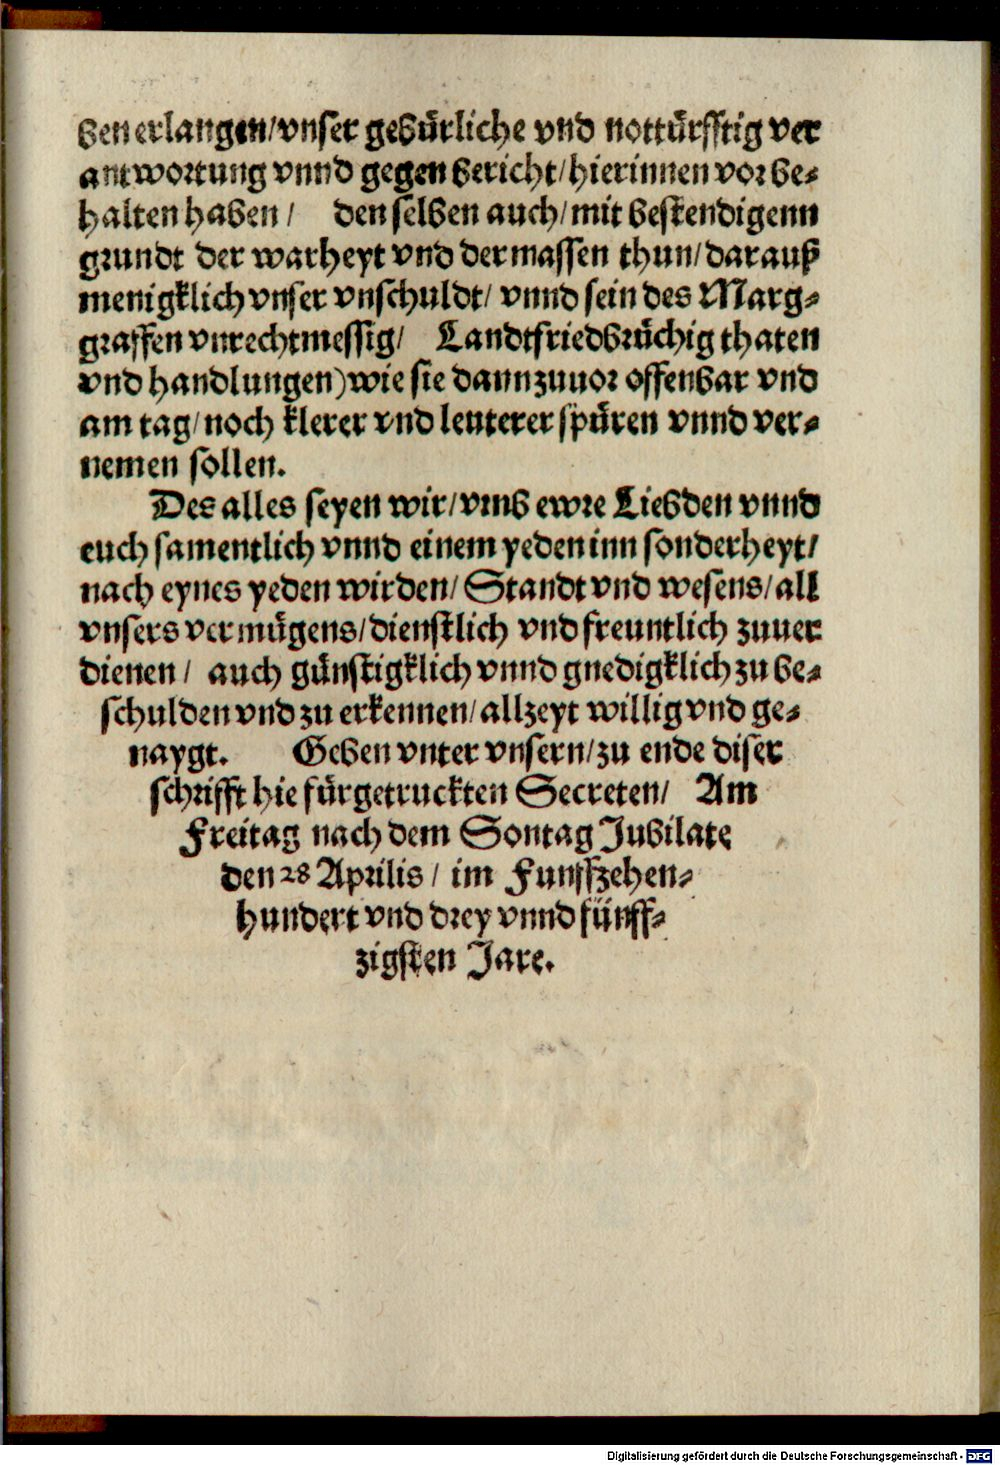 ben erlangen/vnser gebürliche vnd nottürfftig ver
antwortung vnnd gegen bericht/hierinnen vorbe-
halten haben/ den selben auch/mit bestendigenn
grundt der warheyt vnd dermassen thun/darauß
menigklich vnser vnschuldt/ vnnd sein des Marg-
graffen vnrechtmessig/ Landtfriedbrüchig thaten
vnd handlungen)wie sie dann zuuor offenbar vnd
am tag/noch klerer vnd leuterer spüren vnnd ver-
nemen sollen.
Des alles seyen wir/vmb ewre Liebden vnnd
euch samentlich vnnd einem yeden inn sonderheyt/
nach eynes yeden wirden/Standt vnd wesens/all
vnsers vermügens/dienstlich vnd freuntlich zuuer
dienen/ auch günstigklich vnnd gnedigklich zu be-
schulden vnd zu erkennen/allzeyt willig vnd ge-
naygt. Geben vnter vnsern/zu ende diser
schrifft hie fürgetruckten Secreten/ Am
Freitag nach dem Sontag Jubilate
den 28 Aprilis/ im Funffzehen-
hundert vnd drey vnnd fünff-
zigsten Jare.
Digitalisierung gefördert durch die Deutsche Forschungsgemeinschaft - DFG